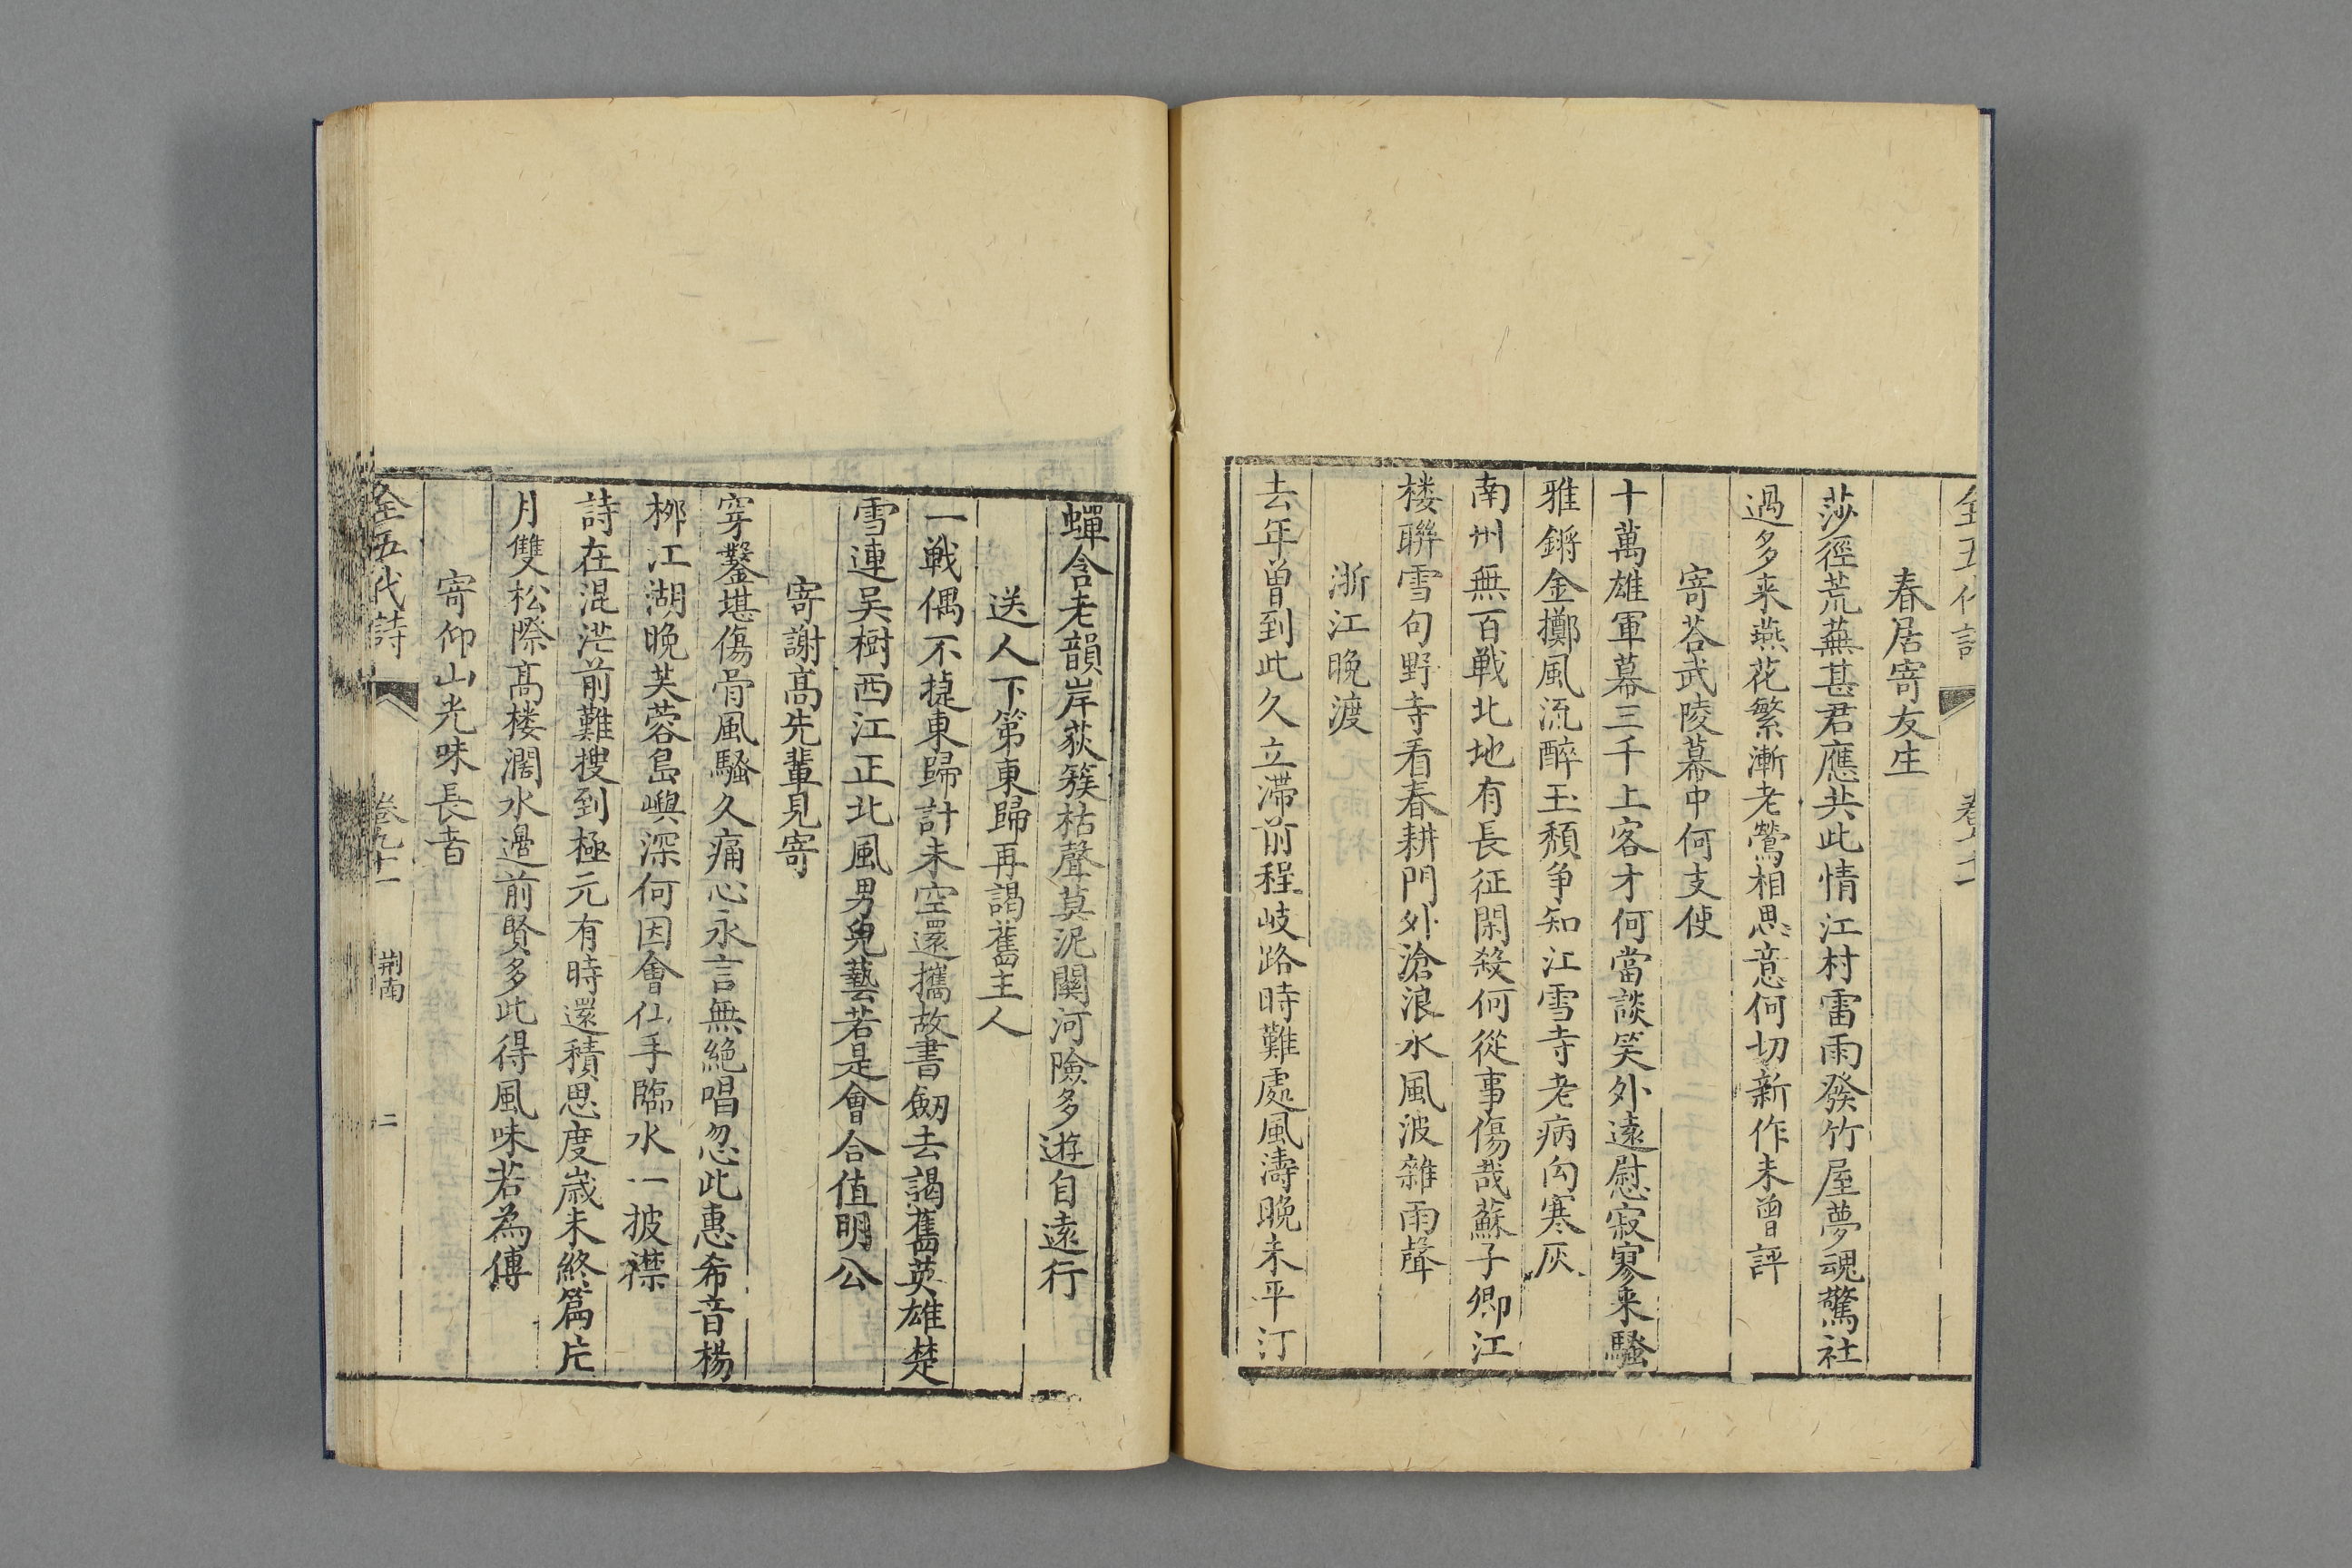 全五代詩
春居寄友生
莎徑荒蕪甚君應共此情江村雷雨發竹屋夢魂驚社
過多来燕花繁漸老鶯相思意何切新作未曾評
寄荅武陵幕中何支使
十萬雄軍幕三千上客才何當談笑外遠慰寂寥来騷
雅鏘金擲風流醉玉頽争知江雪寺老病向寒灰
南州無百戰北地有長征閑殺何從事傷哉蘇子卿江
楼聯雪句野寺看春耕門外滄浪水風波雜雨聲
浙江晚渡
去年曽到此久立滞前程岐路時難處風濤晚未平汀
蟬含老韻岸荻簇枯聲莫泥關河險多遊自遠行
送人下第東歸再謁舊主人
一戰偶不捷東歸計未空還攜故書劒去謁舊英雄楚
雪連吴樹西江正北風男兒藝若是會合值明公
寄謝高先輩見寄
穿鑿堪傷骨風騷久痛心永言無絶唱忽此惠希音楊
栁江湖晚芙蓉島嶼深何因會仙手臨水一披襟
詩在混茫前難搜到極元有時還積思度歳未終篇片
月雙松際高楼濶水邉前賢多此得風味若為傳
寄仰山光味長者
全五代詩 卷九十一 荆南 二